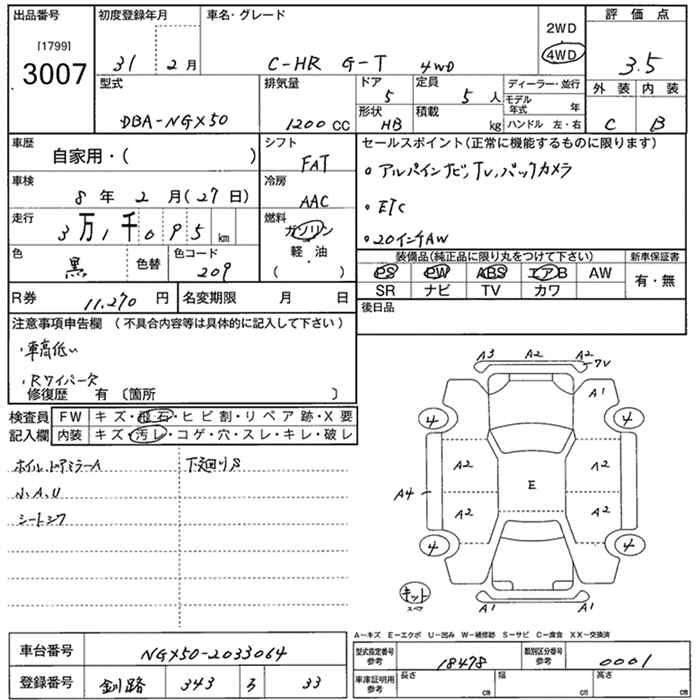 出品番号 初度登録年月 車名・グレード 評価点
[1799]
3007
31 2月 C-HR G-T 4WD
2WD
4WD
3.5
型式 排気量 ドア 定員 ディーラー・並行 外装 内装
5 5人
モデル年式 年
DBA-NGX50 1200CC 形状 HB 積載 kg ハンドル 左・右 C B
車歴 シフト セールスポイント(正常に機能するものに限ります)
自家用・( ) FAT
・アルパインナビ, TV, バックカメラ
車検 冷房
8年2月(27日) AAC
・ETC
走行 燃料
3万1千095km ガソリン
・20インチAW
軽・油
( )
色 色替 色コード
黒 209
装備品(純正品に限り丸をつけて下さい) 新車保証書
PS PW ABS エアB AW 有・無
SR ナビ TV カワ
R券 11,270円 名変期限 月 日
後日品
注意事項申告欄 (不具合内容等は具体的に記入して下さい)
・車高低い
・Rワイパー欠
修復歴 有 〔箇所 〕
検査員 FW キズ・飛石・ヒビ割・リペア跡・X要
記入欄 内装 キズ・汚レ・コゲ・穴・スレ・キレ・破レ
ホイル ドアミラーA 下廻りS
小,A,U
シートシワ
A3 A2 A2 7U
A1
4 4
A2 A2
A4 E
A2 A2
4 4
キット
スペア
A1 A1
A−キズ E−エクボ U−凹み W−補修跡 S−サビ C−腐食 XX−交換済
車台番号 NGX50-2033064
型式指定番号 参考 18478 類別区分番号 参考 0001
登録番号 釧路 343 ろ 33
車庫証明用 参考 長さ cm 幅 cm 高さ cm